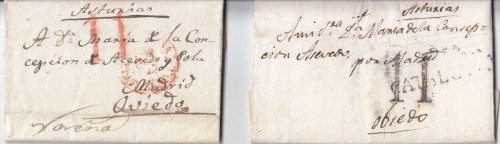 Asturias
11
A Dª Maria de la Con
cepcion de Acevedo y Pola
Madrid
Oviedo
Noreña
Asturias
A mi Sra Dª Maria de la Concep
cion Acevedo
por Madrid
11
Obiedo